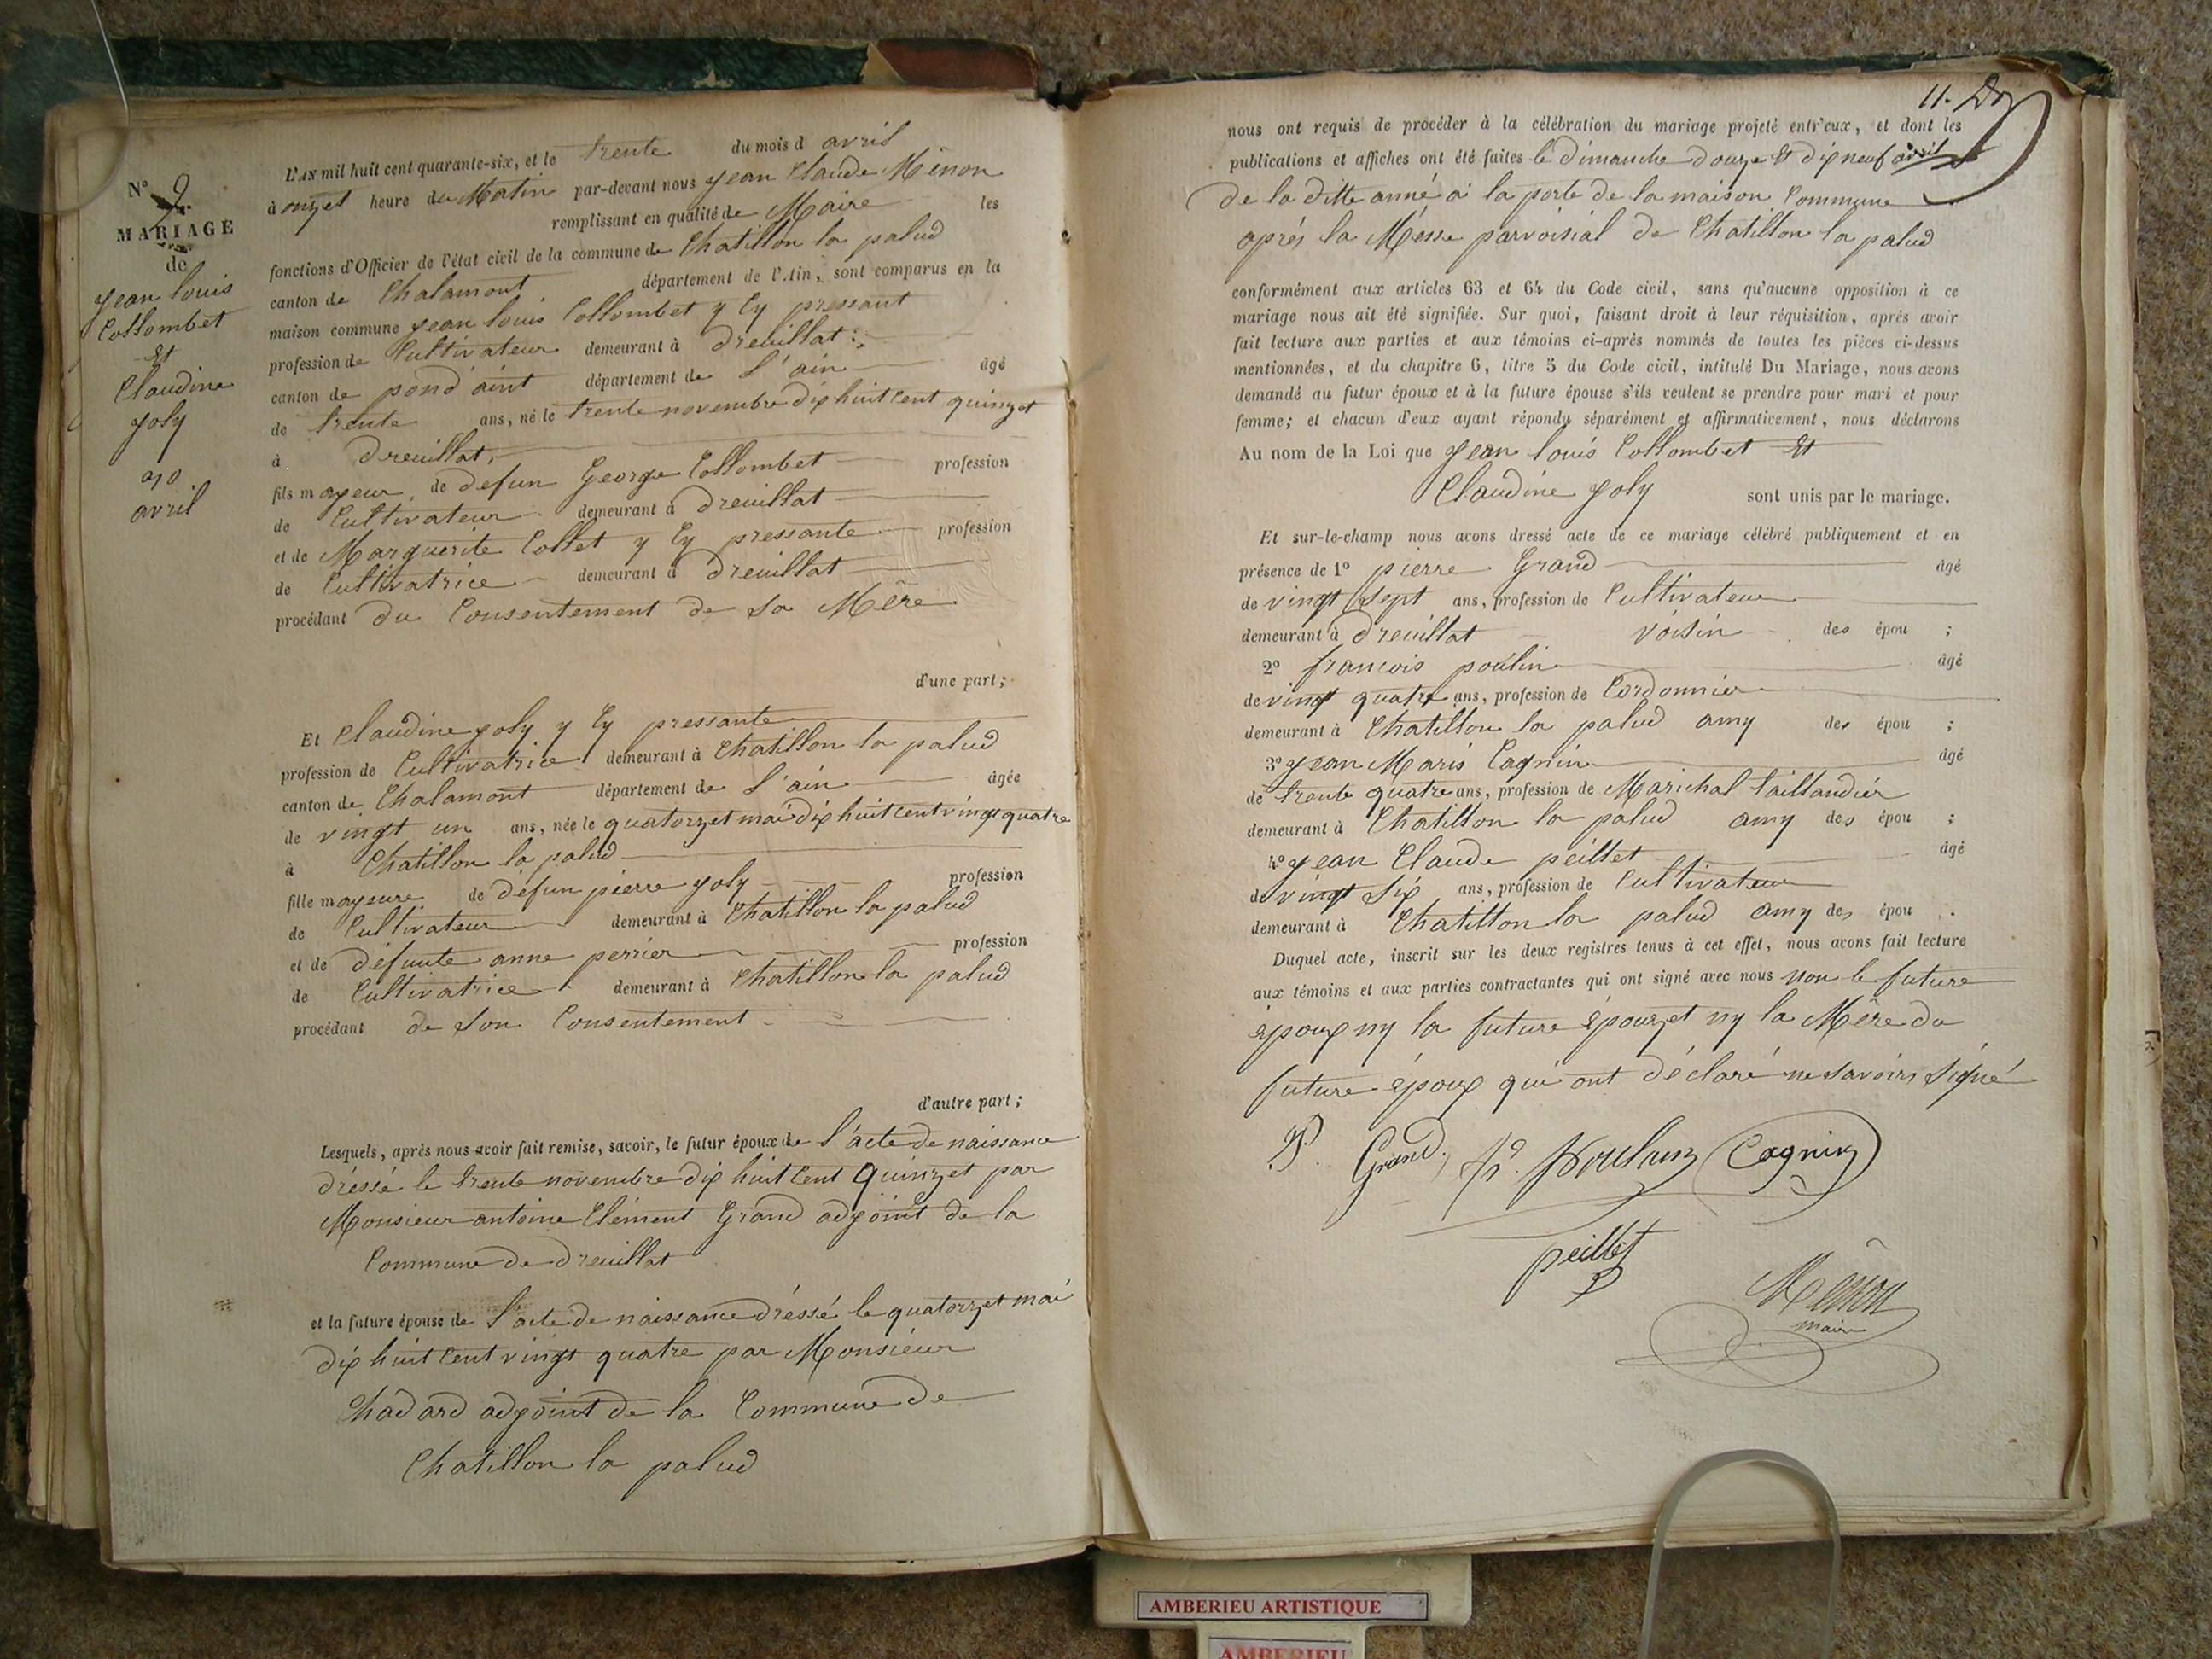 N° 9
MARIAGE
de
jean louis
Collombet
Et
Claudine
joly
30
avril
L'AN mil huit cent quarante-six, et le trente du mois d avril
à onzet heure du Matin par-devant nous jean Claude Mênon
remplissant en qualité de Maire les
fonctions d'Officier de l'état civil de la commune de Chatillon la palud
canton de Chalamont département de l'Ain, sont comparus en la
maison commune jean louis Collombet y Cy pressant
profession de Cultivateur demeurant à dreuillat
canton de pond'aint département de L'ain âgé
de trente ans, né le trente novembre dix huit Cent quinzet
à dreuillat
fils mayeur de defun George Collombet profession
de Cultivateur demeurant à dreuillat
et de Marguerite Collet y Cy pressante profession
de Cultivatrice demeurant à dreuillat
procédant du Consentement de Sa Mêre
d'une part;
Et Claudine joly y Cy pressante
profession de Cultivatrice demeurant à Chatillon la palud
canton de Chalamont département de L'ain âgée
de vingt un ans, née le quatorzet mai dix huit Cent vingt quatre
à Chatillon la palud
fille mayeure de défun pierre joly profession
de Cultivateur demeurant à Chatillon la palud
et de défunte anne perrier profession
de Cultivatrice demeurant à Chatillon la palud
procédant de Son Consentement
d'autre part;
Lesquels, après nous avoir fait remise, savoir, le futur époux de L'acte de naissance
dréssé le trente novembre dix huit Cent Quinzet par
Monsieur antoine Clément Grand adjoint de la
Commune de dreuillat
et la future épouse de L'acte de naissance dréssé le quatorzet mai
dix huit Cent vingt quatre par Monsieur
Chadard adjoint de la Commune de
Chatillon la palud
11.
nous ont requis de procéder à la célébration du mariage projeté entr'eux, et dont les
publications et affiches ont été faites le dimanche douze Et dix neuf avril
de la ditte anné à la porte de la maison Commune
aprés la Mésse parvoisial de Chatillon la palud
conformément aux articles 63 et 64 du Code civil, sans qu'aucune opposition à ce
mariage nous ait été signifiée. Sur quoi, faisant droit à leur réquisition, après avoir
fait lecture aux parties et aux témoins ci-après nommés de toutes les pièces ci-dessus
mentionnées, et du chapitre 6, titre 5 du Code civil, intitulé Du Mariage, nous avons
demandé au futur époux et à la future épouse s'ils veulent se prendre pour mari et pour
femme; et chacun d'eux ayant répondu séparément et affirmativement, nous déclarons
Au nom de la Loi que jean louis Collombet Et
Claudine joly sont unis par le mariage.
Et sur-le-champ nous avons dressé acte de ce mariage célébré publiquement et en
présence de 1° pierre Grand âgé
de vingt Sept ans, profession de Cultivateur
demeurant à dreuillat voisin des épou ;
2° francois poulin âgé
de vingt quatre ans, profession de Cordonnier
demeurant à Chatillon la palud amy des épou ;
3° jean Maris Cagnin âgé
de trente quatre ans, profession de Marichal taillandier
demeurant à Chatillon la palud amy des épou ;
4° jean Claude peillet âgé
de vingt Six ans, profession de Cultivateur
demeurant à Chatillon la palud amy des épou .
Duquel acte, inscrit sur les deux registres tenus à cet effet, nous avons fait lecture
aux témoins et aux parties contractantes qui ont signé avec nous non le future
époux ny la future épouzet ny la Mêre du
future époux qui ont déclaré ne savoirs signé
P. Grand. Cagnin
peillet
Mênon
maire
AMBERIEU ARTISTIQUE
AMBERIEU